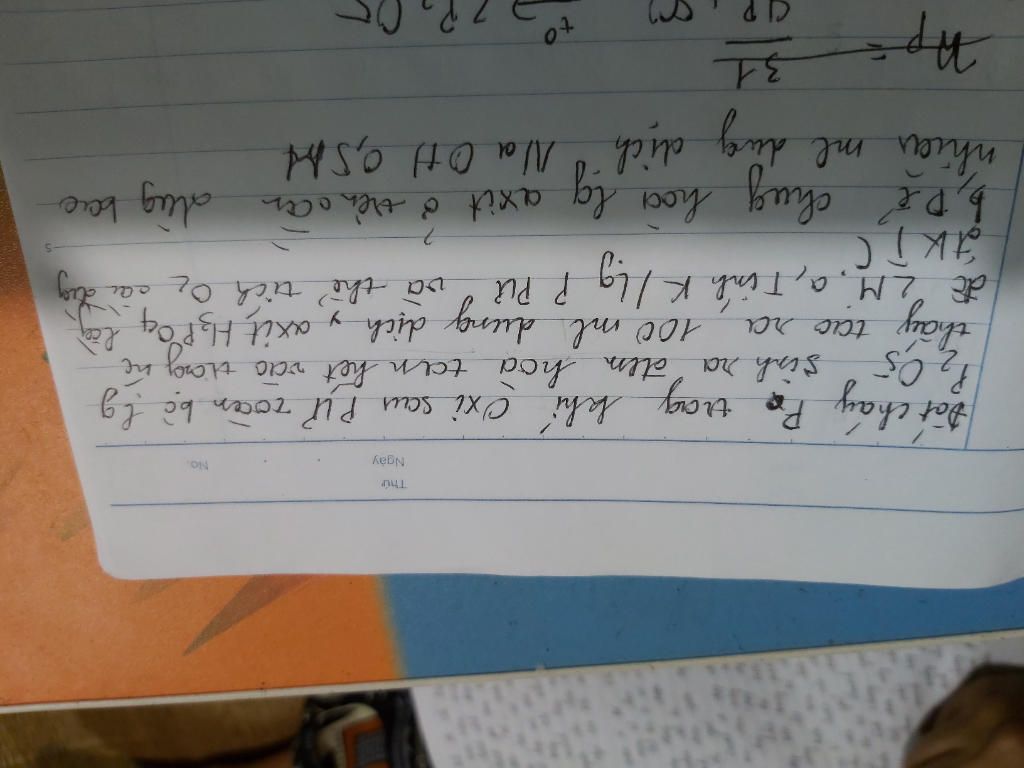 Thứ
Ngày
No.
Đốt cháy P trog khí Oxi sau PƯ toàn bộ lg
P2O5 sinh ra đem hoà tan hết vào trog nc
thấy tạo ra 100 ml dung dịch axit H3PO4 lg
độ 2M. a, Tính K/Lg P PƯ và thể tích O2 cần dùg
đK
b, Để chug hoà lg axit ở trên cần dùg bao
nhiêu ml dug dịch NaOH 0,5M
nP = / 31
4P + 5O2 t° → 2P2O5